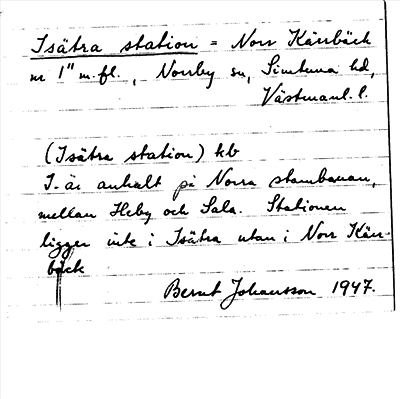 Isätra station = Norr Kärrbäck
nr 1" m.fl., Norrby sn, Simtuna hd,
Västmanl. l.
(Isätra station) kb
I. är anhalt på Norra stambanan,
mellan Heby och Sala. Stationen
ligger inte i Isätra utan i Norr Kärr-
bäck
Bernt Johansson 1947.